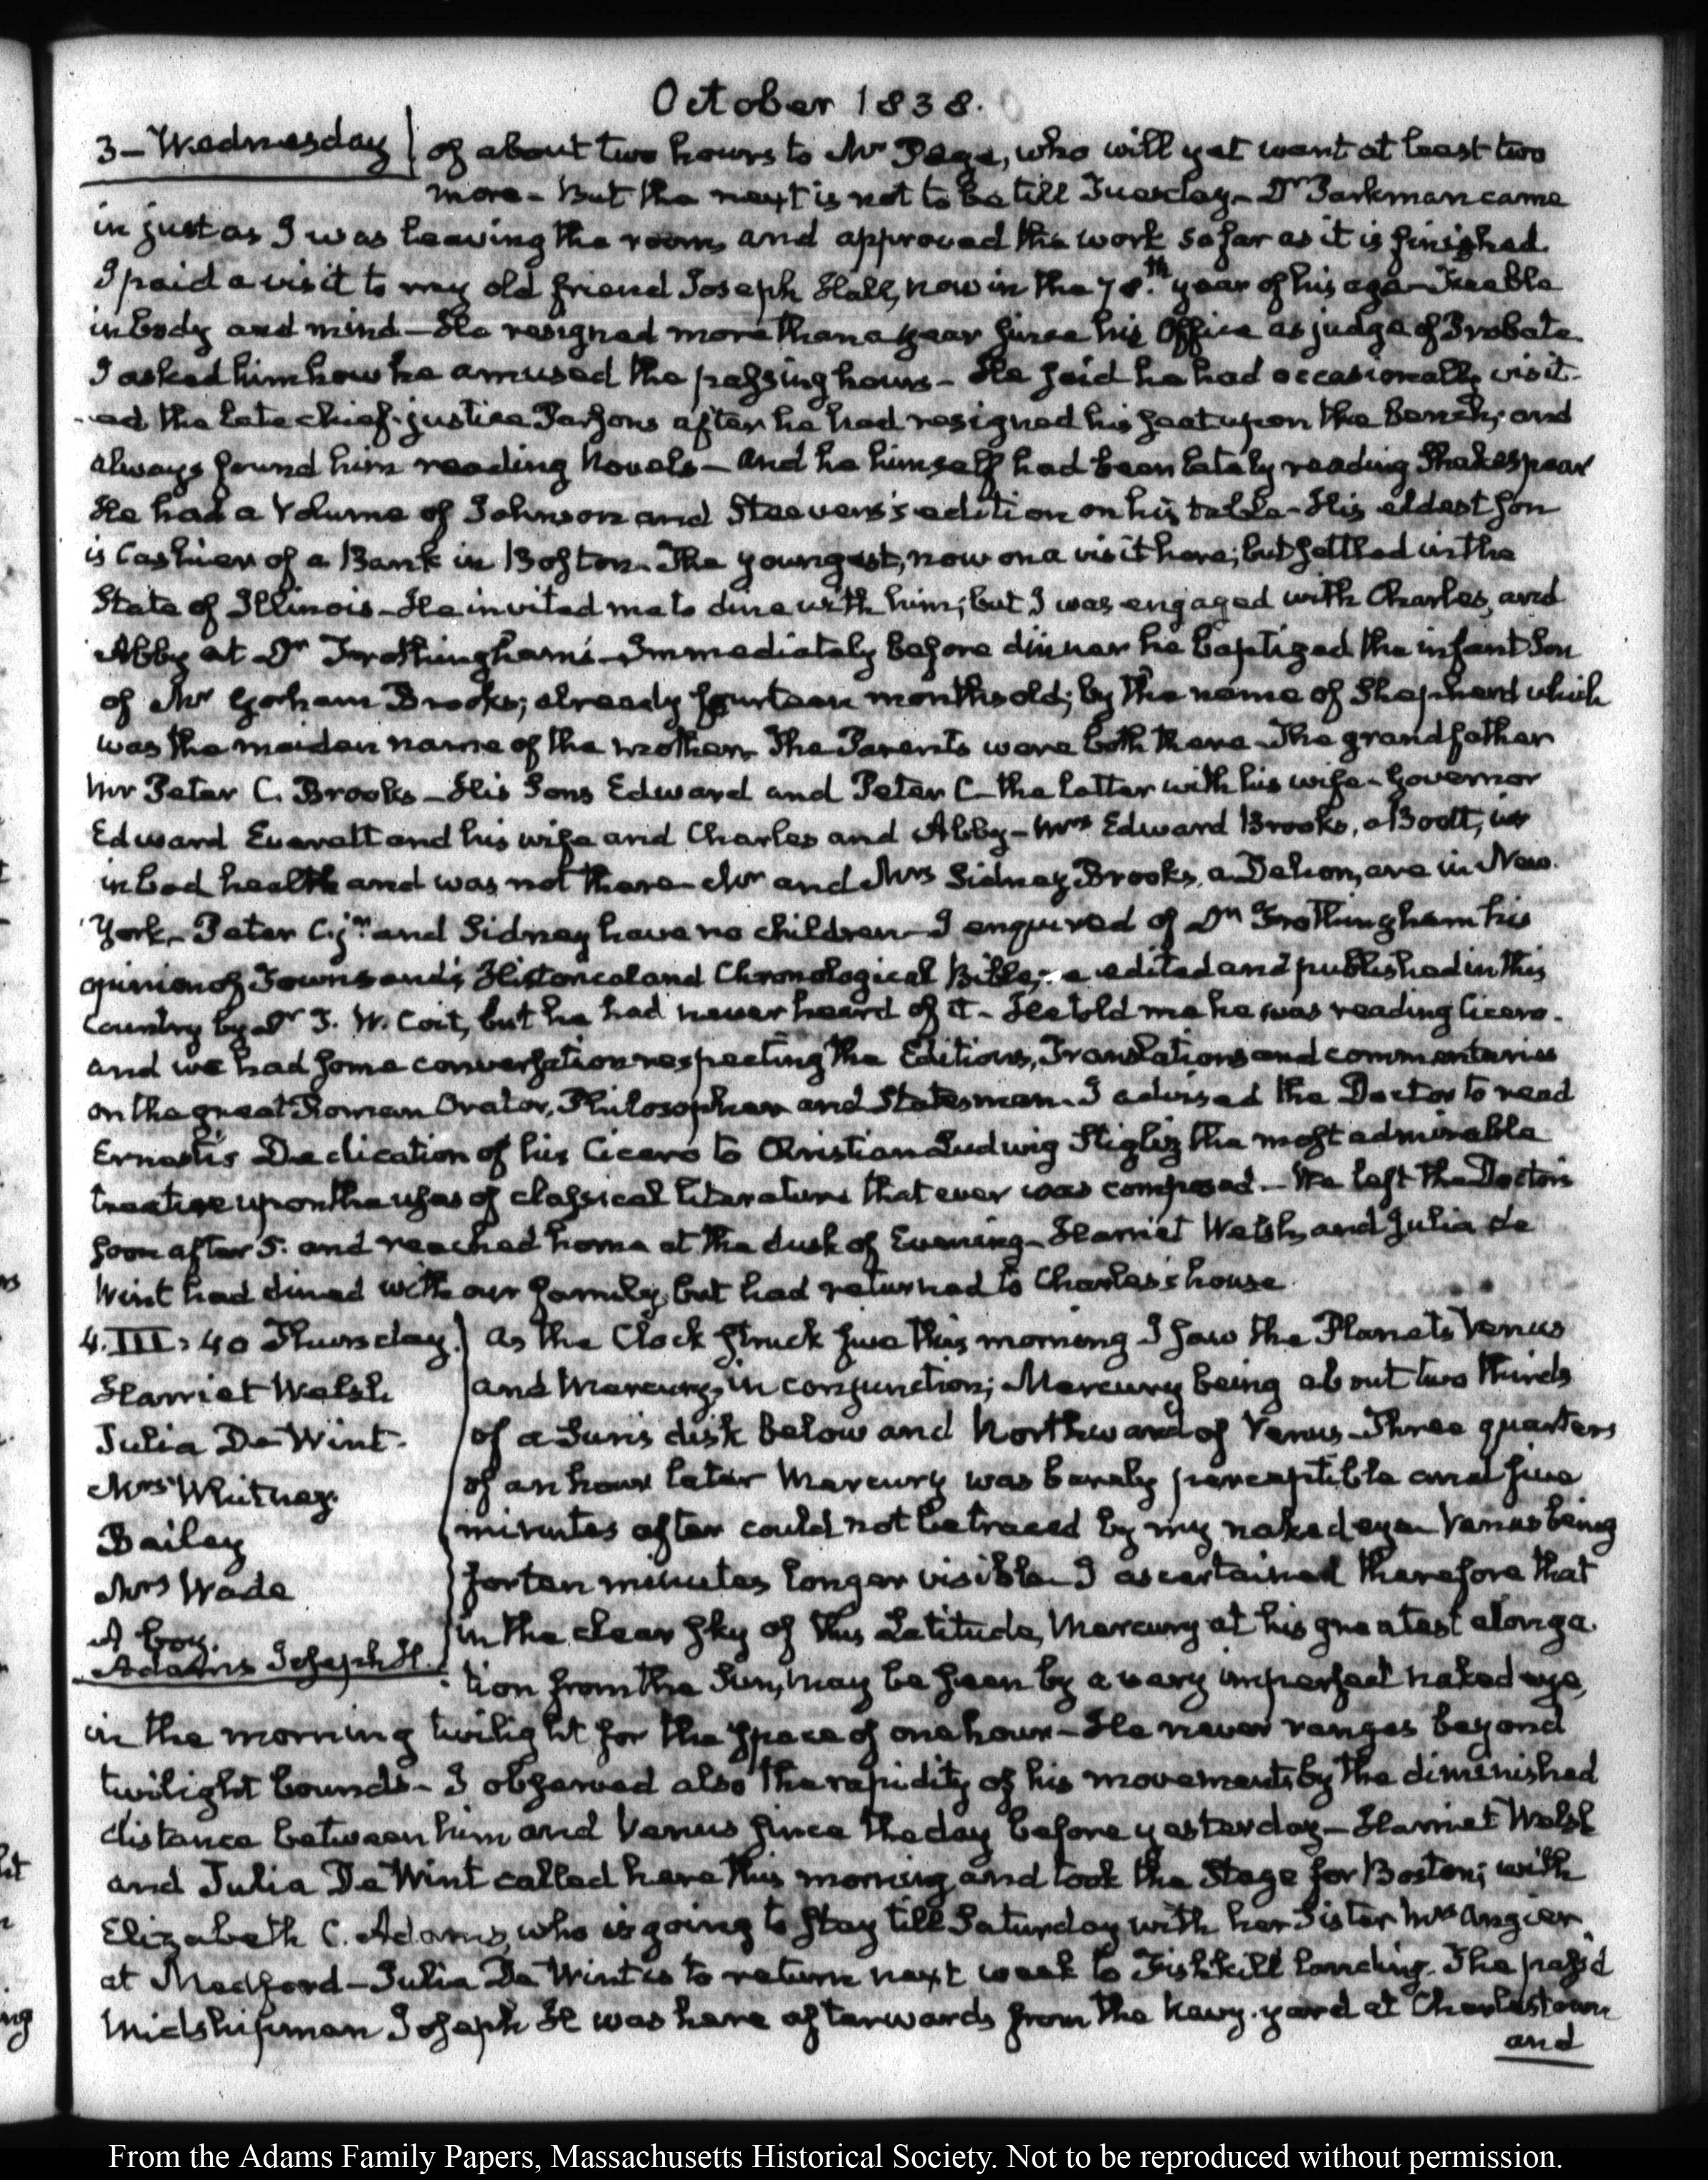 October 1838.
3 – Wednesday
of about two hours to Mr Page, who will yet want at least two
more – But the next is not to be till Tuesday – Dr Parkman came
in just as I was leaving the room, and approved the work so far as it is finished
I paid a visit to my old friend Joseph Hall, now in the 78.th year of his age – Feeble
in body and mind – He resigned more than a year since his Office as judge of Probate.
I asked him how he amused the passing hours – He said he had occasionally visit-
-ed the late chief-justice Parsons after he had resigned his seat upon the Bench; and
always found him reading Novels – and he himself had been lately reading Shakespear
He had a Volume of Johnson and Steevens's edition on his table – His eldest son
is Cashier of a Bank in Boston. The youngest, now on a visit here; but settled in the
State of Illinois – He invited me to dine with him; but I was engaged with Charles, and
Abby at Dr Frothingham's – Immediately before dinner he baptized the infant Son
of Mr Gorham Brooks; already fourteen months old; by the name of Shepherd which
was the maiden name of the mother. The Parents were both there – The grandfather
Mr Peter C. Brooks – His Sons Edward and Peter C – the latter with his wife – Governor
Edward Everett and his wife and Charles and Abby – Mrs Edward Brooks, a Boott, is
in bad health and was not there – Mr and Mrs Sidney Brooks, a Dehon, are in New-
York – Peter C. jr. and Sidney have no children – I enquired of Dr Frothingham his
opinion of Townsend's Historical and Chronological Bible, edited and published in this
Country by Dr T. W. Coit, but he had never heard of it – He told me he was reading Cicero –
and we had some conversation respecting the Editions, Translations and commentaries
on the great Roman Orator, Philosopher and Statesman. I advised the Doctor to read
Ernesti's Dedication of his Cicero to Christian Ludwig Stigliz the most admirable
treatise upon the uses of classical literature that ever was composed – We left the Doctor's
soon after 5. and reached home at the dusk of Evening – Harriet Welsh, and Julia de
Wint had dined with our family, but had returned to Charles's house.
4. III: 40 Thursday.
Harriet Welsh
Julia De Wint.
Mrs Whitney.
Bailey
Mrs Wade
A boy.
Adams Joseph H.
As the Clock struck five this morning I saw the Planets Venus
and Mercury, in conjunction; Mercury being about two thirds
of a Sun's disk below and Northward of Venus – Three quarters
of an hour later Mercury was barely perceptible and five
minutes after could not be traced by my naked eye – Venus being
for ten minutes longer visible – I ascertained therefore that
in the clear sky of this Latitude, Mercury at his greatest elonga-
tion from the Sun, may be seen by a very imperfect naked eye,
in the morning twilight for the space of one hour – He never ranges beyond
twilight bounds – I observed also the rapidity of his movements by the diminished
distance between him and Venus since the day before yesterday – Harriet Welsh
and Julia De Wint called here this morning and took the Stage for Boston; with
Elizabeth C. Adams, who is going to stay till Saturday with her Sister Mrs Angier
at Medford – Julia De Wint is to return next week to Fishkill Landing. The pass'd
Midshipman Joseph H was here afterwards from the Navy-yard at Charlestown
and
From the Adams Family Papers, Massachusetts Historical Society. Not to be reproduced without permission.